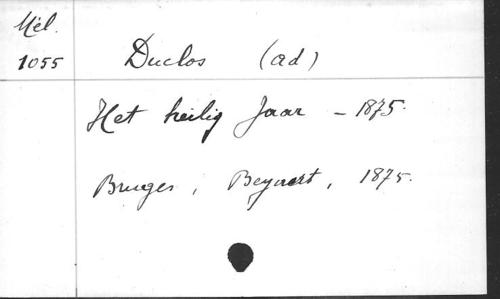 Mél.
1055
Duclos (ad)
Het heilig Jaar - 1875.
Bruges, Beyaert, 1875.